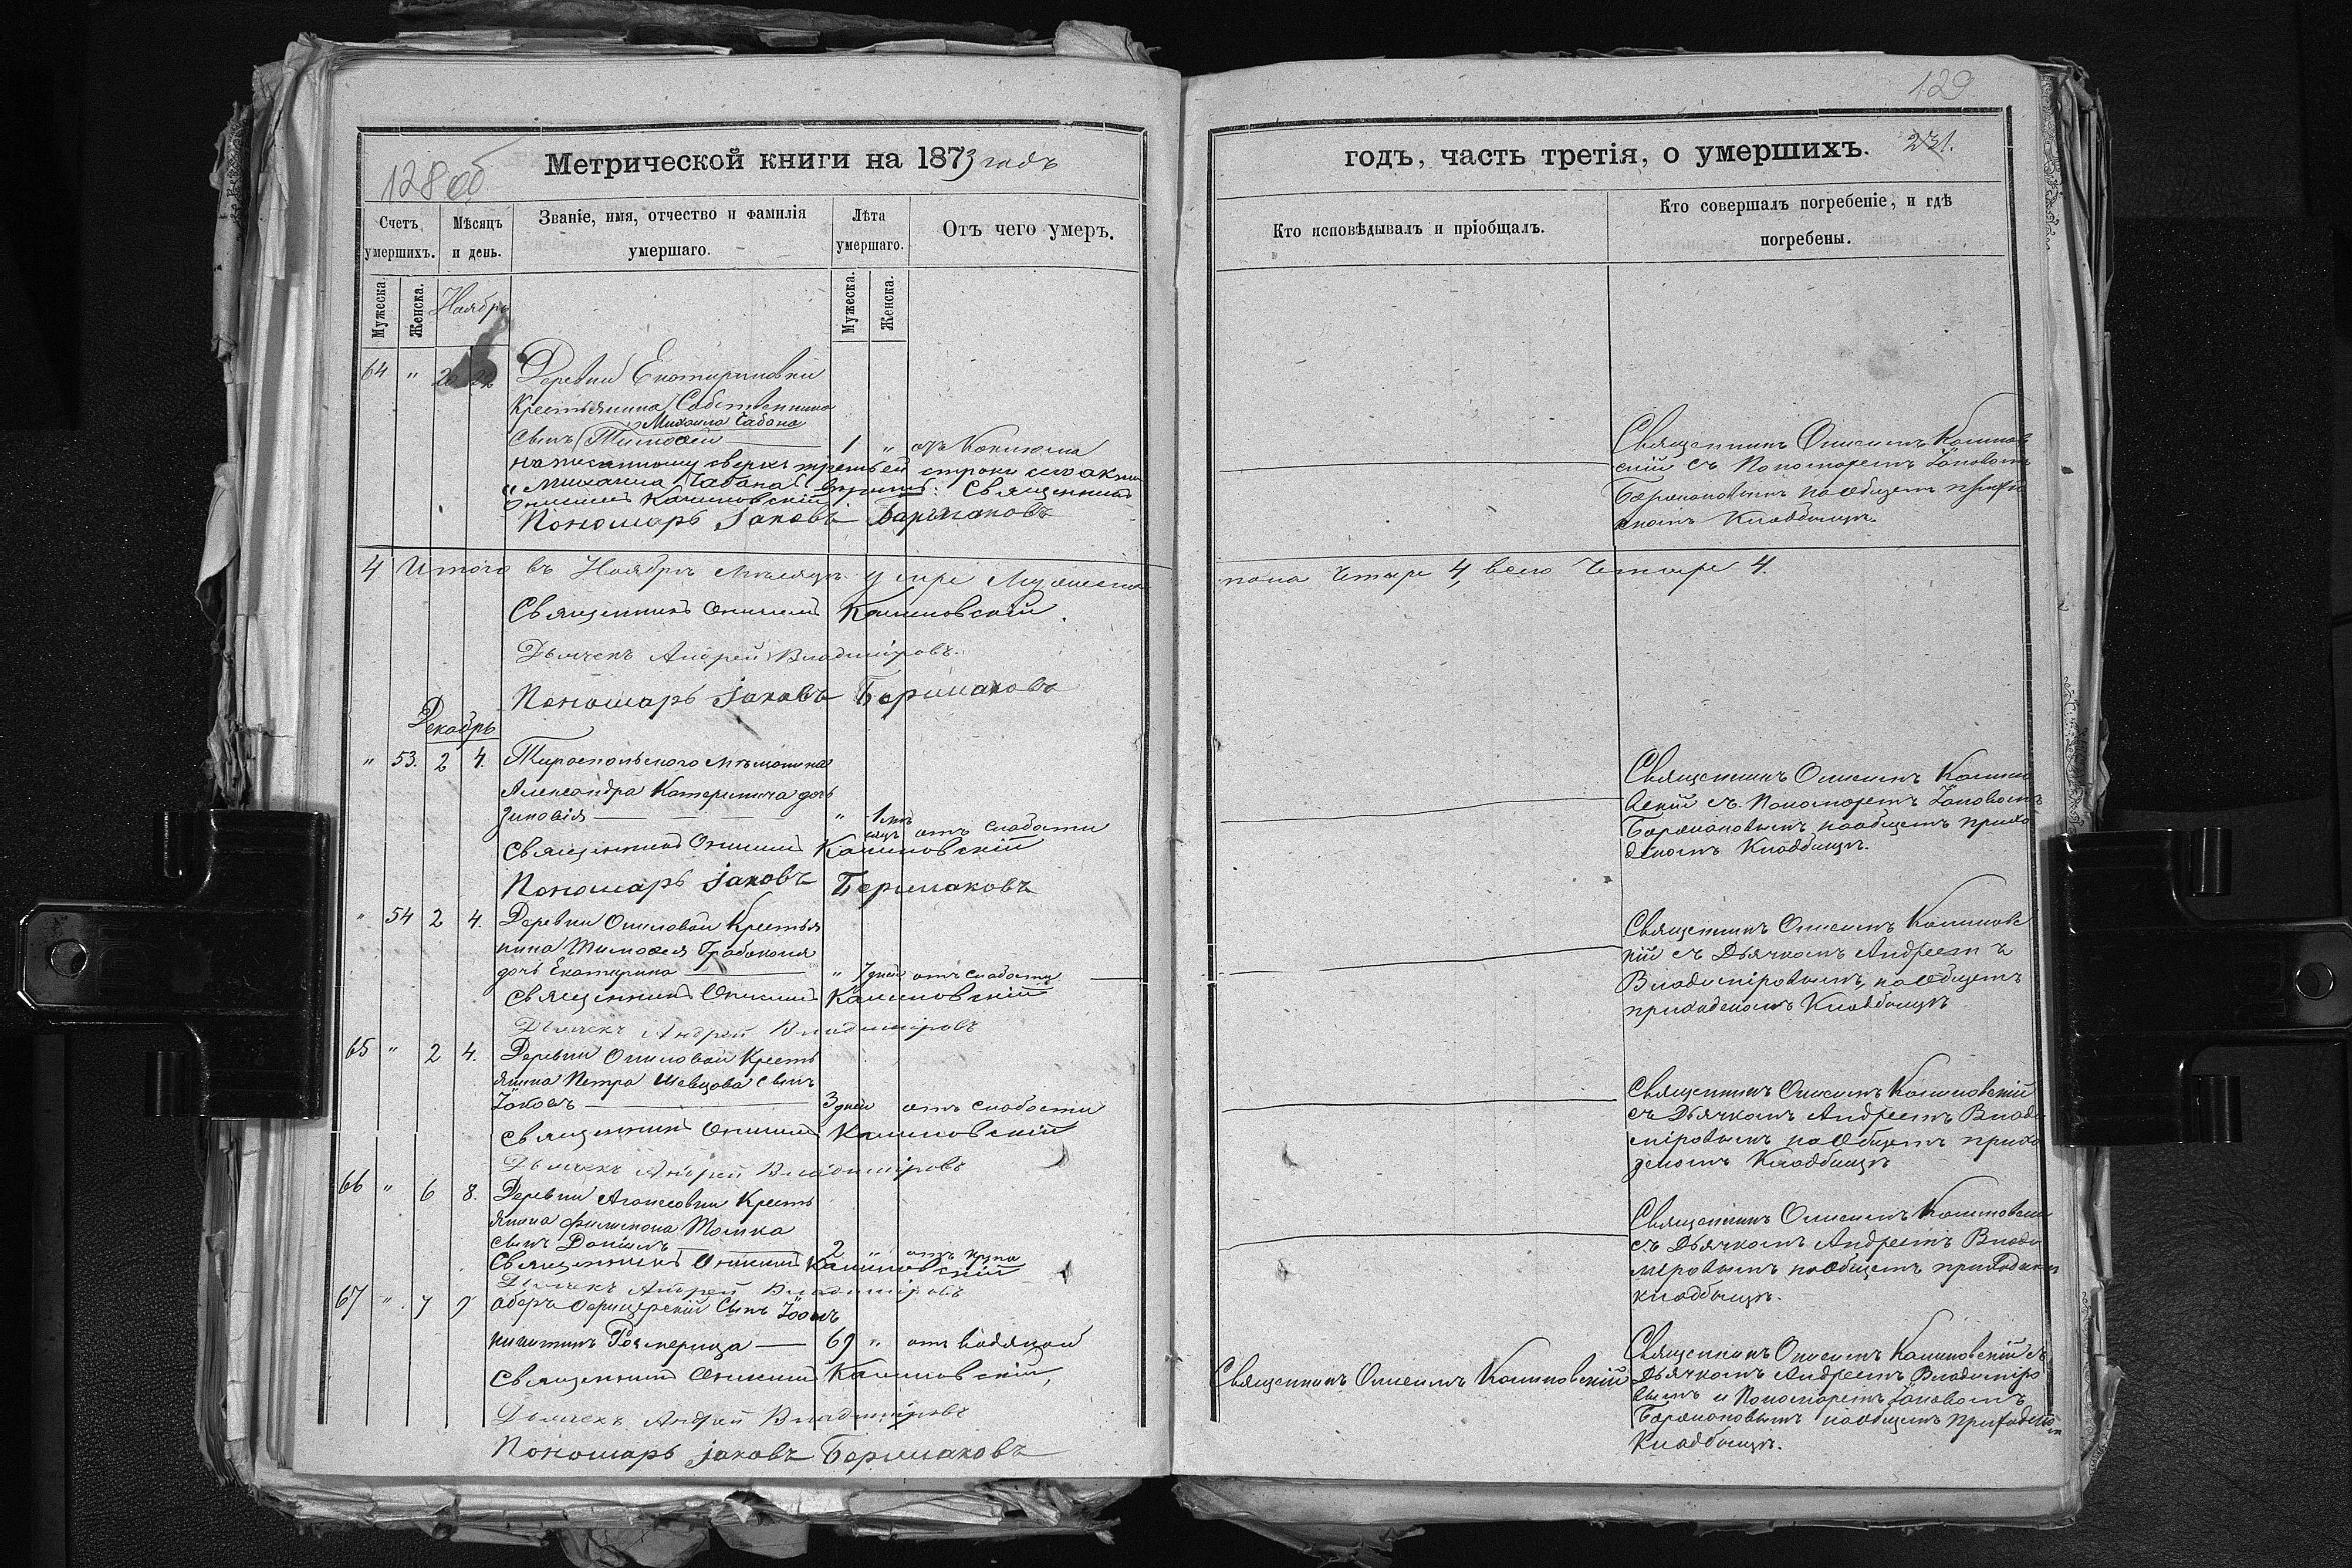 128 об
Метрической книги на 1873 годъ
Счетъ умершихъ.
Мѣсяцъ и день.
Званіе, имя, отчество и фамилія умершаго.
Лѣта умершаго.
Отъ чего умеръ.
Мужеска.
Женска.
Ноябрь
Мужеска.
Женска.
64 " 20 22 Деревни Екатериновки
Крестьянина Собственника
Михаила Чабана
сынъ Тимоѳей 1 "
написанному сверхъ третьей строки
"Михаила Чабана" вѣрить: Священникъ
Онисимъ Калиновскій
Пономарь Іаковъ Бармаковъ
4 Итого въ Ноябрѣ мѣсяцѣ умре Мужеска
Священникъ Онисимъ Калиновскій.
Дьячекъ Андрей Владиміровъ.
Пономарь Іаковъ Бармаковъ
Декабрь
" 53. 2 4. Тираспольского мѣщанина
Александра Катеринича дочь
Зиновія " 1 мѣсяцъ отъ слабости
Священникъ Онисимъ Калиновскій
Пономарь Іаковъ Бармаковъ
" 54 2 4. Деревни Осиповой Крестья
нина Тимоѳея
дочь Екатерина " 7 дней отъ слабости
Священникъ Онисимъ Калиновскій
Дьячекъ Андрей Владиміровъ
65 " 2 4. Деревни Осиповой Кресть
янина Петра Шевцова сынъ
Іаковъ 3 дней отъ слабости
Священникъ Онисимъ Калиновскій
Дьячекъ Андрей Владиміровъ
66 " 6 8. Деревни Кресть
янина Филимона
сынъ Даніилъ 2 " отъ крупа
Священникъ Онисимъ Калиновскій
Дьячекъ Андрей Владиміровъ
67 " 7 9 Оберъ Офицерскій Сынъ
69 " отъ водяной
Священникъ Онисимъ Калиновскій,
Дьячекъ Андрей Владиміровъ
Пономарь Іаковъ Бармаковъ
129
231.
годъ, часть третія, о умершихъ.
Кто исповѣдывалъ и пріобщалъ.
Кто совершалъ погребеніе, и гдѣ погребены.
Священникъ Онисимъ Калинов
скій съ Пономаремъ Іаковомъ
Бармаковымъ на Общемъ приход
скомъ Кладбищѣ.
пола Четыре 4, всего Четыре 4.
Священникъ Онисимъ Калино
вскій съ Пономаремъ Іаковомъ
Бармаковымъ на общемъ прихо
дскомъ Кладбищѣ.
Священникъ Онисимъ Калиновс
кій съ Дьячкомъ Андреемъ
Владиміровымъ, на Общемъ
приходскомъ Кладбищѣ
Священникъ Онисимъ Калиновскій
съ Дьячкомъ Андреемъ Влади
міровымъ на Общемъ прихо
дскомъ Кладбищѣ
Священникъ Онисимъ Калиновскій
съ Дьячкомъ Андреемъ Влади
меровымъ на Общемъ приходском
кладбищѣ.
Священникъ Онисимъ Калиновскій
Священникъ Онисимъ Калиновскій съ
Дьячкомъ Андреемъ Владиміро
вымъ и Пономаремъ Іаковомъ
Бармаковымъ на общемъ приходском
Кладбищѣ.